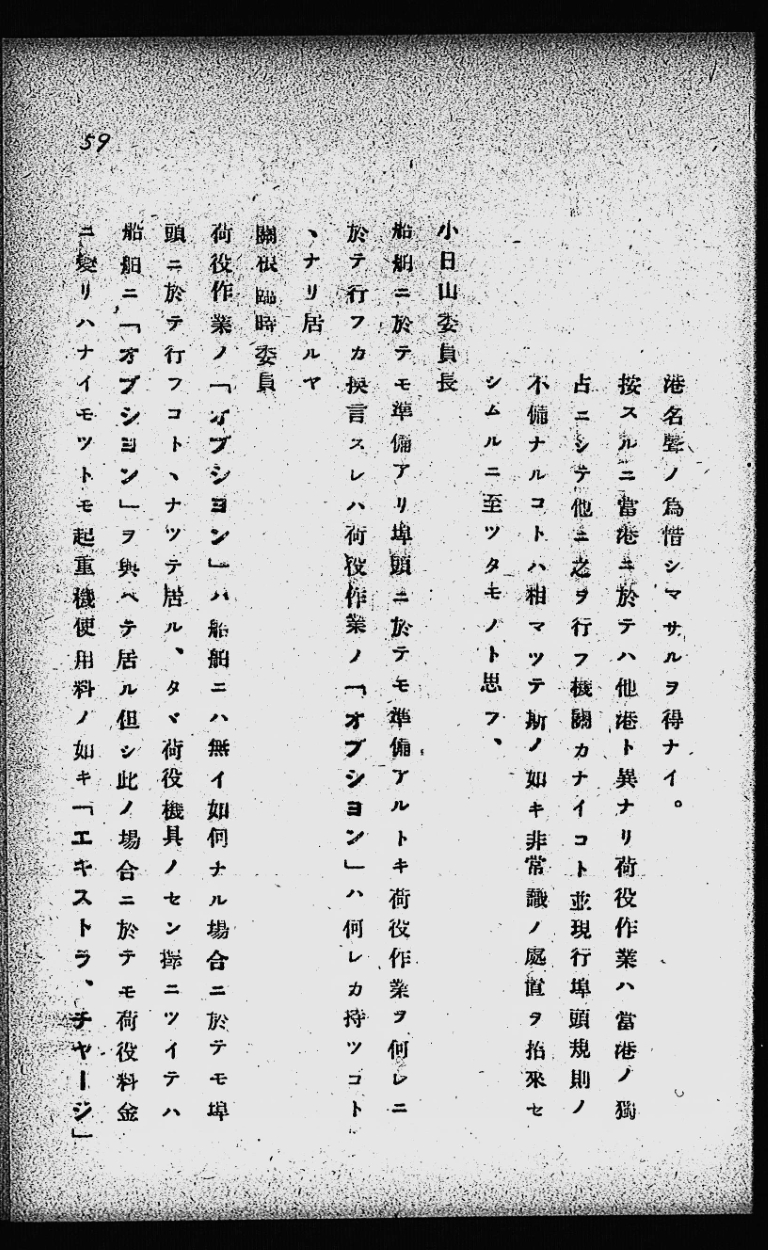 59
港名聲ノ為惜シマサルヲ得ナイ。
按スルニ當港ニ於テハ他港ト異ナリ荷役作業ハ當港ノ獨
占ニシテ他ニ之ヲ行フ機關カナイコト並現行埠頭規則ノ
不備ナルコトハ相マツテ斯ノ如キ非常識ノ處置ヲ招來セ
シムルニ至ツタモノト思フ、
小日山委員長
船舶ニ於テモ準備アリ埠頭ニ於テモ準備アルトキ荷役作業ヲ何レニ
於テ行フカ換言スレハ荷役作業ノ「オプシヨン」ハ何レカ持ツコト
ヽナリ居ルヤ
關根臨時委員
荷役作業ノ「オプシヨン」ハ船舶ニハ無イ如何ナル場合ニ於テモ埠
頭ニ於テ行フコトヽナツテ居ル、タヾ荷役機具ノセン擇ニツイテハ
船舶ニ「オプシヨン」ヲ與ヘテ居ル但シ此ノ場合ニ於テモ荷役料金
ニ變リハナイモツトモ起重機使用料ノ如キ「エキストラ、チヤージ」